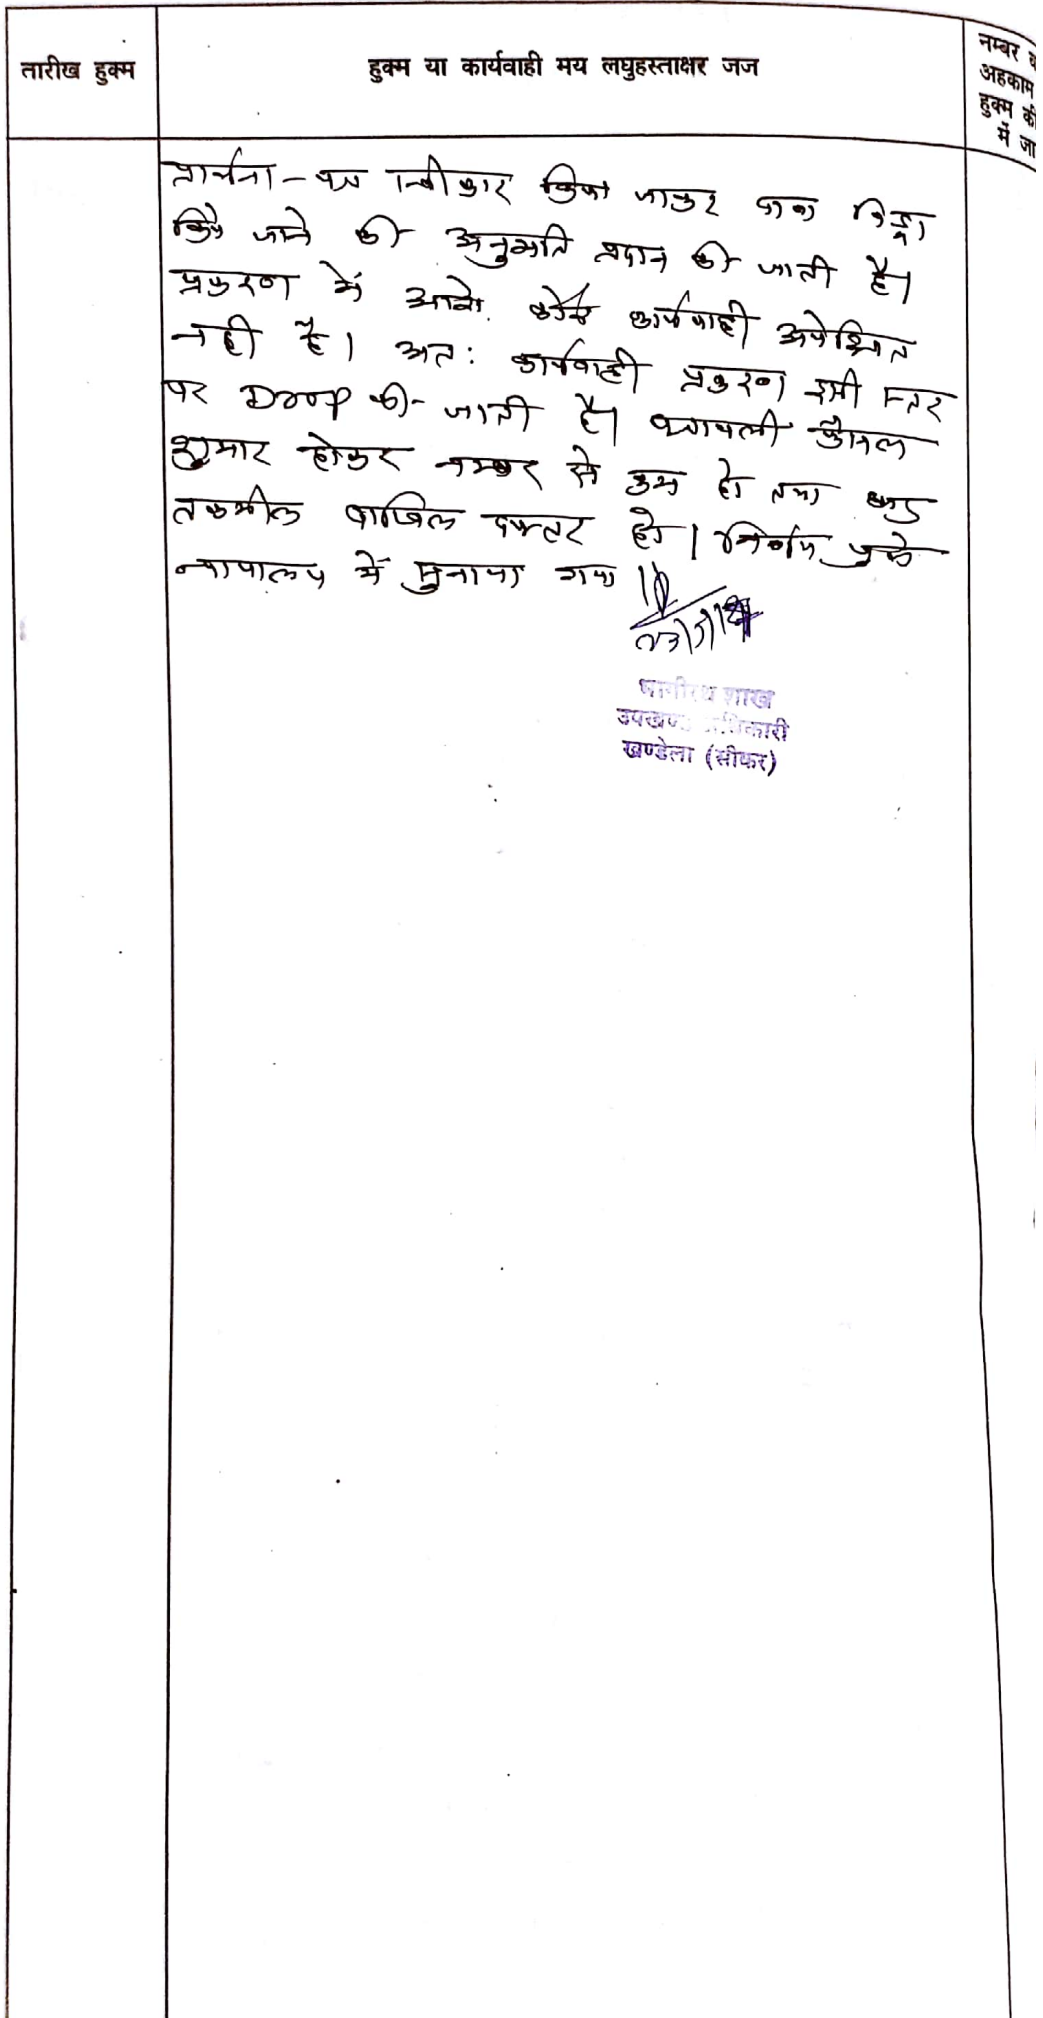 तारीख हुक्म
हुक्म या कार्यवाही मय लघुहस्ताक्षर जज
नम्बर व
अहकाम
हुक्म की
में जा
प्रार्थना-पत्र स्वीकार किया जाकर वाद विड्रा
किये जाने की अनुमति प्रदान की जाती है।
प्रकरण में आगे कोई कार्यवाही अपेक्षित
नही है। अत: कार्यवाही प्रकरण इसी स्तर
पर Drop की जाती है। पत्रावली फैसल
शुमार होकर नम्बर से कम हो तथा बाद
तकमील दाखिल दफ्तर हो। निर्णय खुले
न्यायालय में सुनाया गया।
भागीरथ शाख
उपखण्ड अधिकारी
खण्डेला (सीकर)